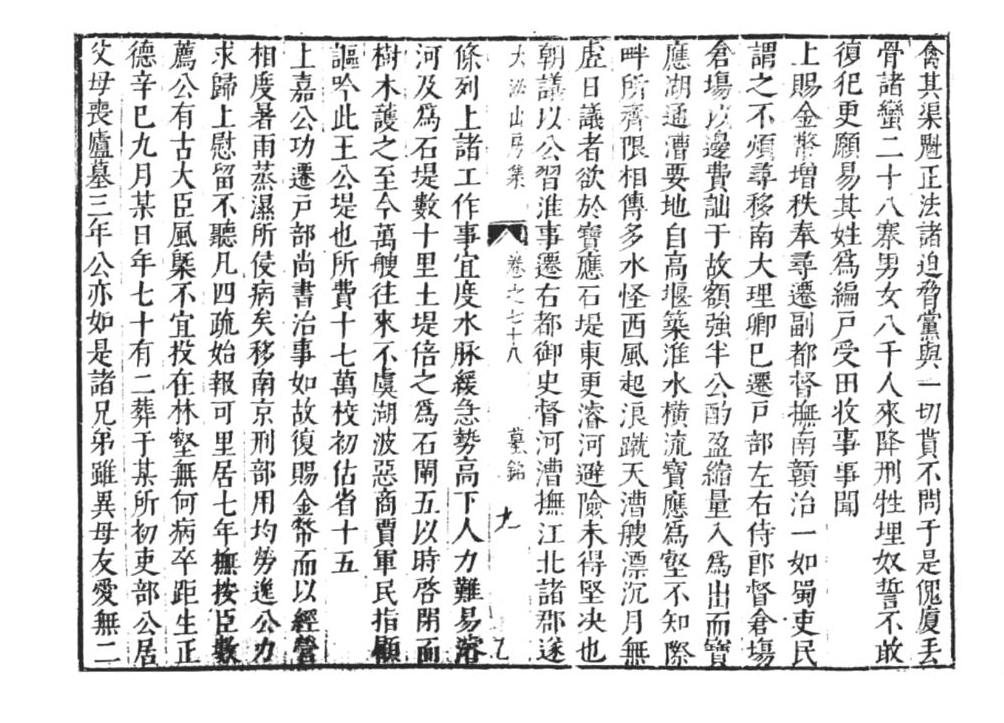 禽其渠魁正法諸迫脅黨與一切貰不問于是傀廈丢
骨諸蠻二十八寨男女八千人來降刑牲埋奴誓不敢
復犯更願易其姓爲編戸受田收事事聞
上賜金幣增秩奉尋遷副都督撫南贑治一如蜀吏民
謂之不煩尋移南大理卿巳遷戸部左右侍郎督倉塲
倉塲以邊費訕于故額強半公酌盈縮量入爲出而寶
應湖通漕要地自高堰築淮水橫流寶應爲壑不知際
畔所齊限相傳多水怪西風起浪蹴天漕艘漂沉月無
虗日議者欲於寶應石堤東更濬河避險未得堅决也
朝議以公習淮事遷右都御史督河漕撫江北諸郡遂
大泌山房集 卷之七十八 墓銘 九
條列上諸工作事宜度水脉緩急勢高下人力難易濬
河及爲石堤數十里土堤倍之爲石閘五以時啓閉面
樹木護之至今萬艘往來不虞湖波惡商賈軍民指顧
謳吟此王公堤也所費十七萬校初估省十五
上嘉公功遷戸部尚書治事如故復賜金幣而以經營
相度暑雨蒸濕所侵病矣移南京刑部用均勞逸公力
求歸上慰留不聽凡四疏始報可里居七年撫按臣數
薦公有古大臣風槩不宜投在林壑無何病卒距生正
德辛巳九月某日年七十有二葬于某所初吏部公居
父母喪廬墓三年公亦如是諸兄弟雖異母友愛無二